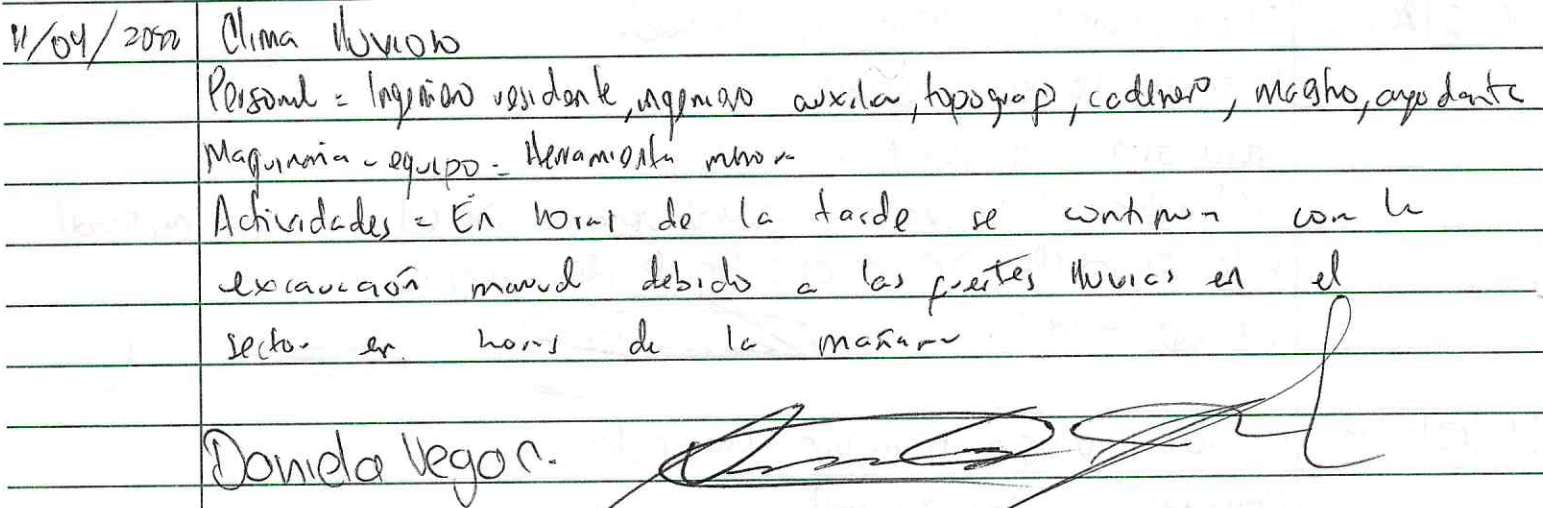 11/04/2022 Clima lluvioso
Personal = Ingeniero residente, ingeniero auxiliar, topografo, cadenero, maestro, ayudante
Maquinaria - equipo = Herramienta menor
Actividades = En horas de la tarde se continua con la
excavación manual debido a las fuertes lluvias en el
sector en horas de la mañana
Daniela Vega